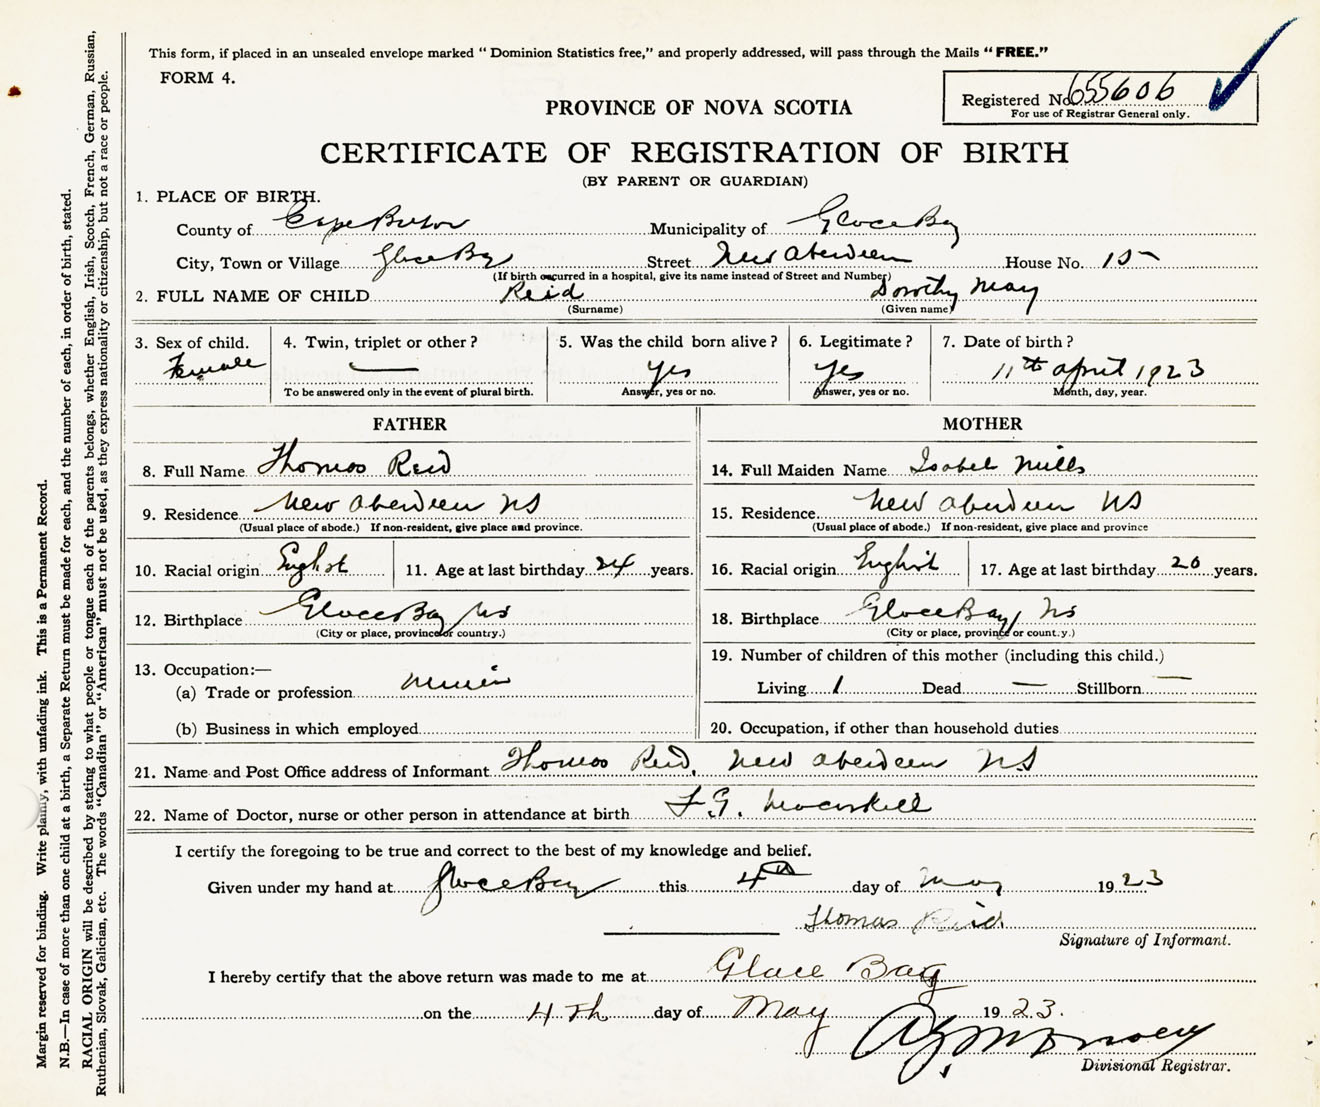 This form, if placed in an unsealed envelope marked "Dominion Statistics free," and properly addressed, will pass through the Mails "FREE."
FORM 4.
Registered No. 655606
For use of Registrar General only.
PROVINCE OF NOVA SCOTIA
CERTIFICATE OF REGISTRATION OF BIRTH
(BY PARENT OR GUARDIAN)
1. PLACE OF BIRTH.
County of Cape Breton Municipality of Glace Bay
City, Town or Village Glace Bay Street New Aberdeen House No. 15
(If birth occurred in a hospital, give its name instead of Street and Number)
2. FULL NAME OF CHILD Reid Dorothy May
(Surname) (Given name)
3. Sex of child. 4. Twin, triplet or other? 5. Was the child born alive? 6. Legitimate? 7. Date of birth?
Female — yes yes 11th April 1923
To be answered only in the event of plural birth. Answer, yes or no. Answer, yes or no. Month, day, year.
FATHER MOTHER
8. Full Name Thomas Reid 14. Full Maiden Name Isabel Mills
9. Residence New Aberdeen NS 15. Residence New Aberdeen NS
(Usual place of abode.) If non-resident, give place and province. (Usual place of abode.) If non-resident, give place and province
10. Racial origin English 11. Age at last birthday 24 years. 16. Racial origin English 17. Age at last birthday 20 years.
12. Birthplace Glace Bay NS 18. Birthplace Glace Bay NS
(City or place, province or country.) (City or place, province or count.y.)
13. Occupation:— 19. Number of children of this mother (including this child.)
(a) Trade or profession miner Living 1 Dead — Stillborn —
(b) Business in which employed 20. Occupation, if other than household duties
21. Name and Post Office address of Informant Thomas Reid, New Aberdeen N.S
22. Name of Doctor, nurse or other person in attendance at birth F.G. Macaskill
I certify the foregoing to be true and correct to the best of my knowledge and belief.
Given under my hand at Glace Bay this 4th day of May 1923
Thomas Reid.
Signature of Informant.
I hereby certify that the above return was made to me at Glace Bay
on the 4th day of May 1923.
Divisional Registrar.
Margin reserved for binding. Write plainly, with unfading ink. This is a Permanent Record.
N.B.—In case of more than one child at a birth, a Separate Return must be made for each, and the number of each, in order of birth, stated.
RACIAL ORIGIN will be described by stating to what people or tongue each of the parents belongs, whether English, Irish, Scotch, French, German, Russian,
Ruthenian, Slovak, Galician, etc. The words "Canadian" or "American" must not be used, as they express nationality or citizenship, but not a race or people.